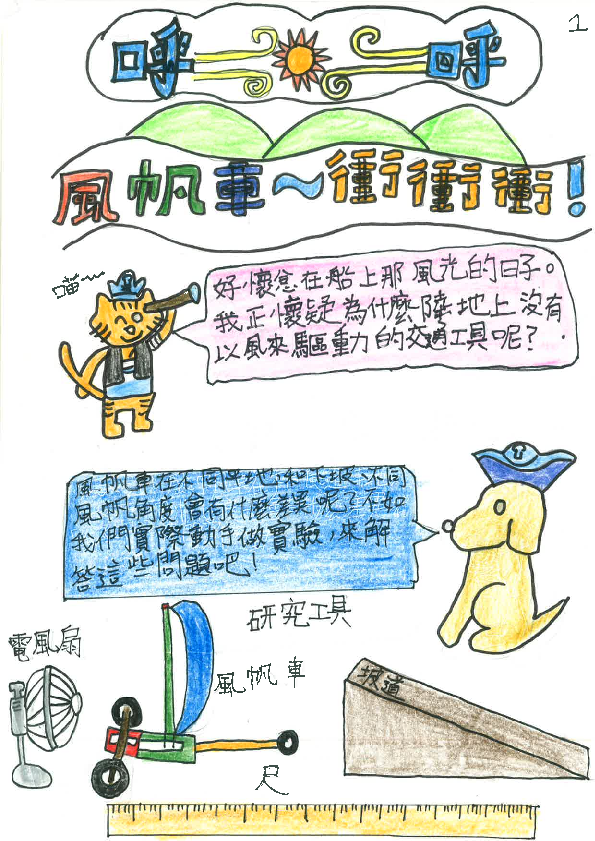 1
呼 呼
風帆車～衝衝衝！
喵～
好懷念在船上那風光的日子。
我正懷疑為什麼陸地上沒有
以風來驅動力的交通工具呢？
風帆車在不同平地和下坡、不同
風帆角度會有什麼差異呢？不如
我們實際動手做實驗，來解
答這些問題吧！
研究工具
電風扇
風帆車
坡道
尺